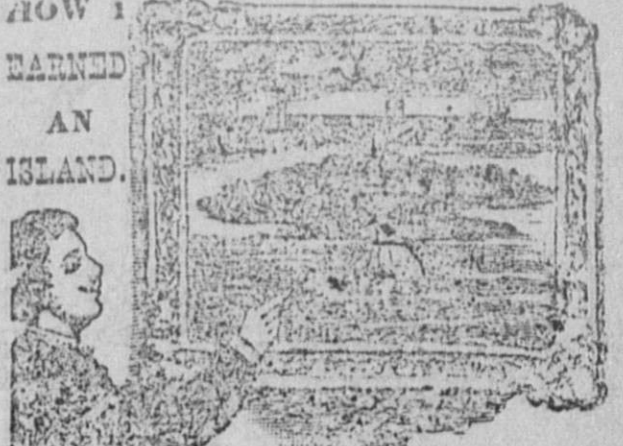 HOW I
EARNED
AN
ISLAND.